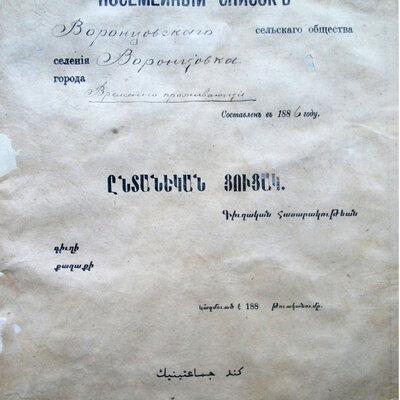 ПОСЕМЕЙНЫЙ СПИСОКЪ
Воронцовскаго сельскаго общества
селенія Воронцовка
города
Временно проживающій
Составленъ въ 1886 году.
ԸՆՏԱՆԵԿԱՆ ՑՈՒՑԱԿ.
Գիւղական Հասարակութեան
գիւղի
քաղաքի
Կազմուած է 188 Թուականումը.
كند جماعتينيك